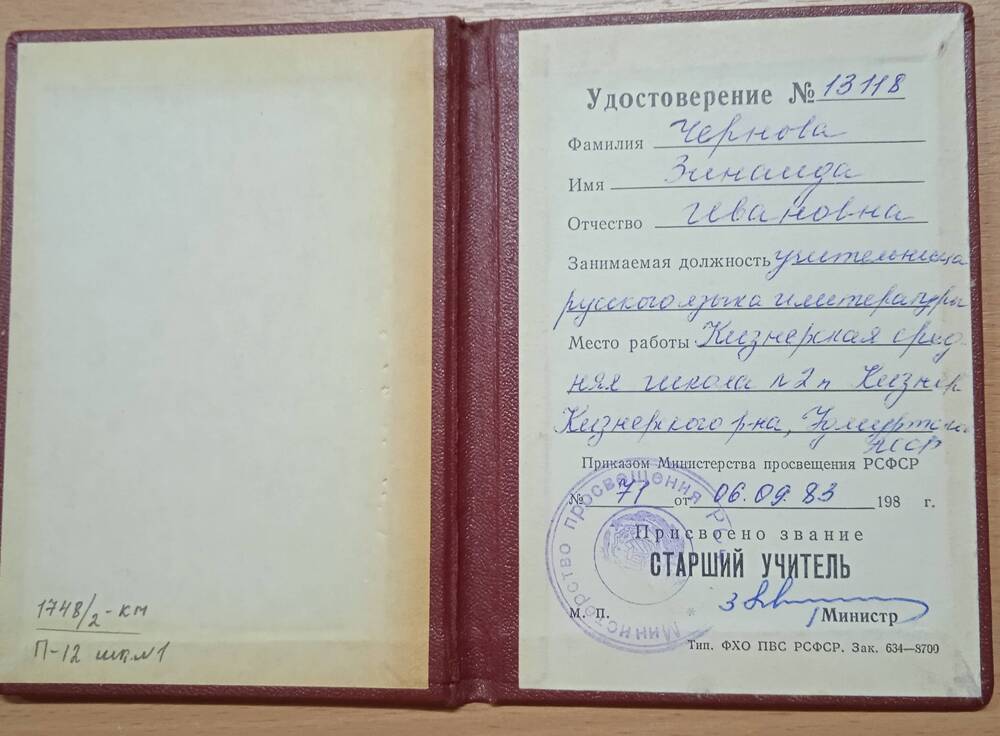 1748/2-КМ
П-12 шк.№1
Удостоверение № 13118
Фамилия Чернова
Имя Зинаида
Отчество Ивановна
Занимаемая должность учительница
русского языка и литературы
Место работы Кизнерская сред
няя школа №2 п Кизнер
Кизнерского р-на, Удмуртской
АССР
Приказом Министерства просвещения РСФСР
№ 71 от 06.09.83 198 г.
Присвоено звание
СТАРШИЙ УЧИТЕЛЬ
М. П. Министр
Тип. ФХО ПВС РСФСР. Зак. 634—8700
Министерство просвещения РС